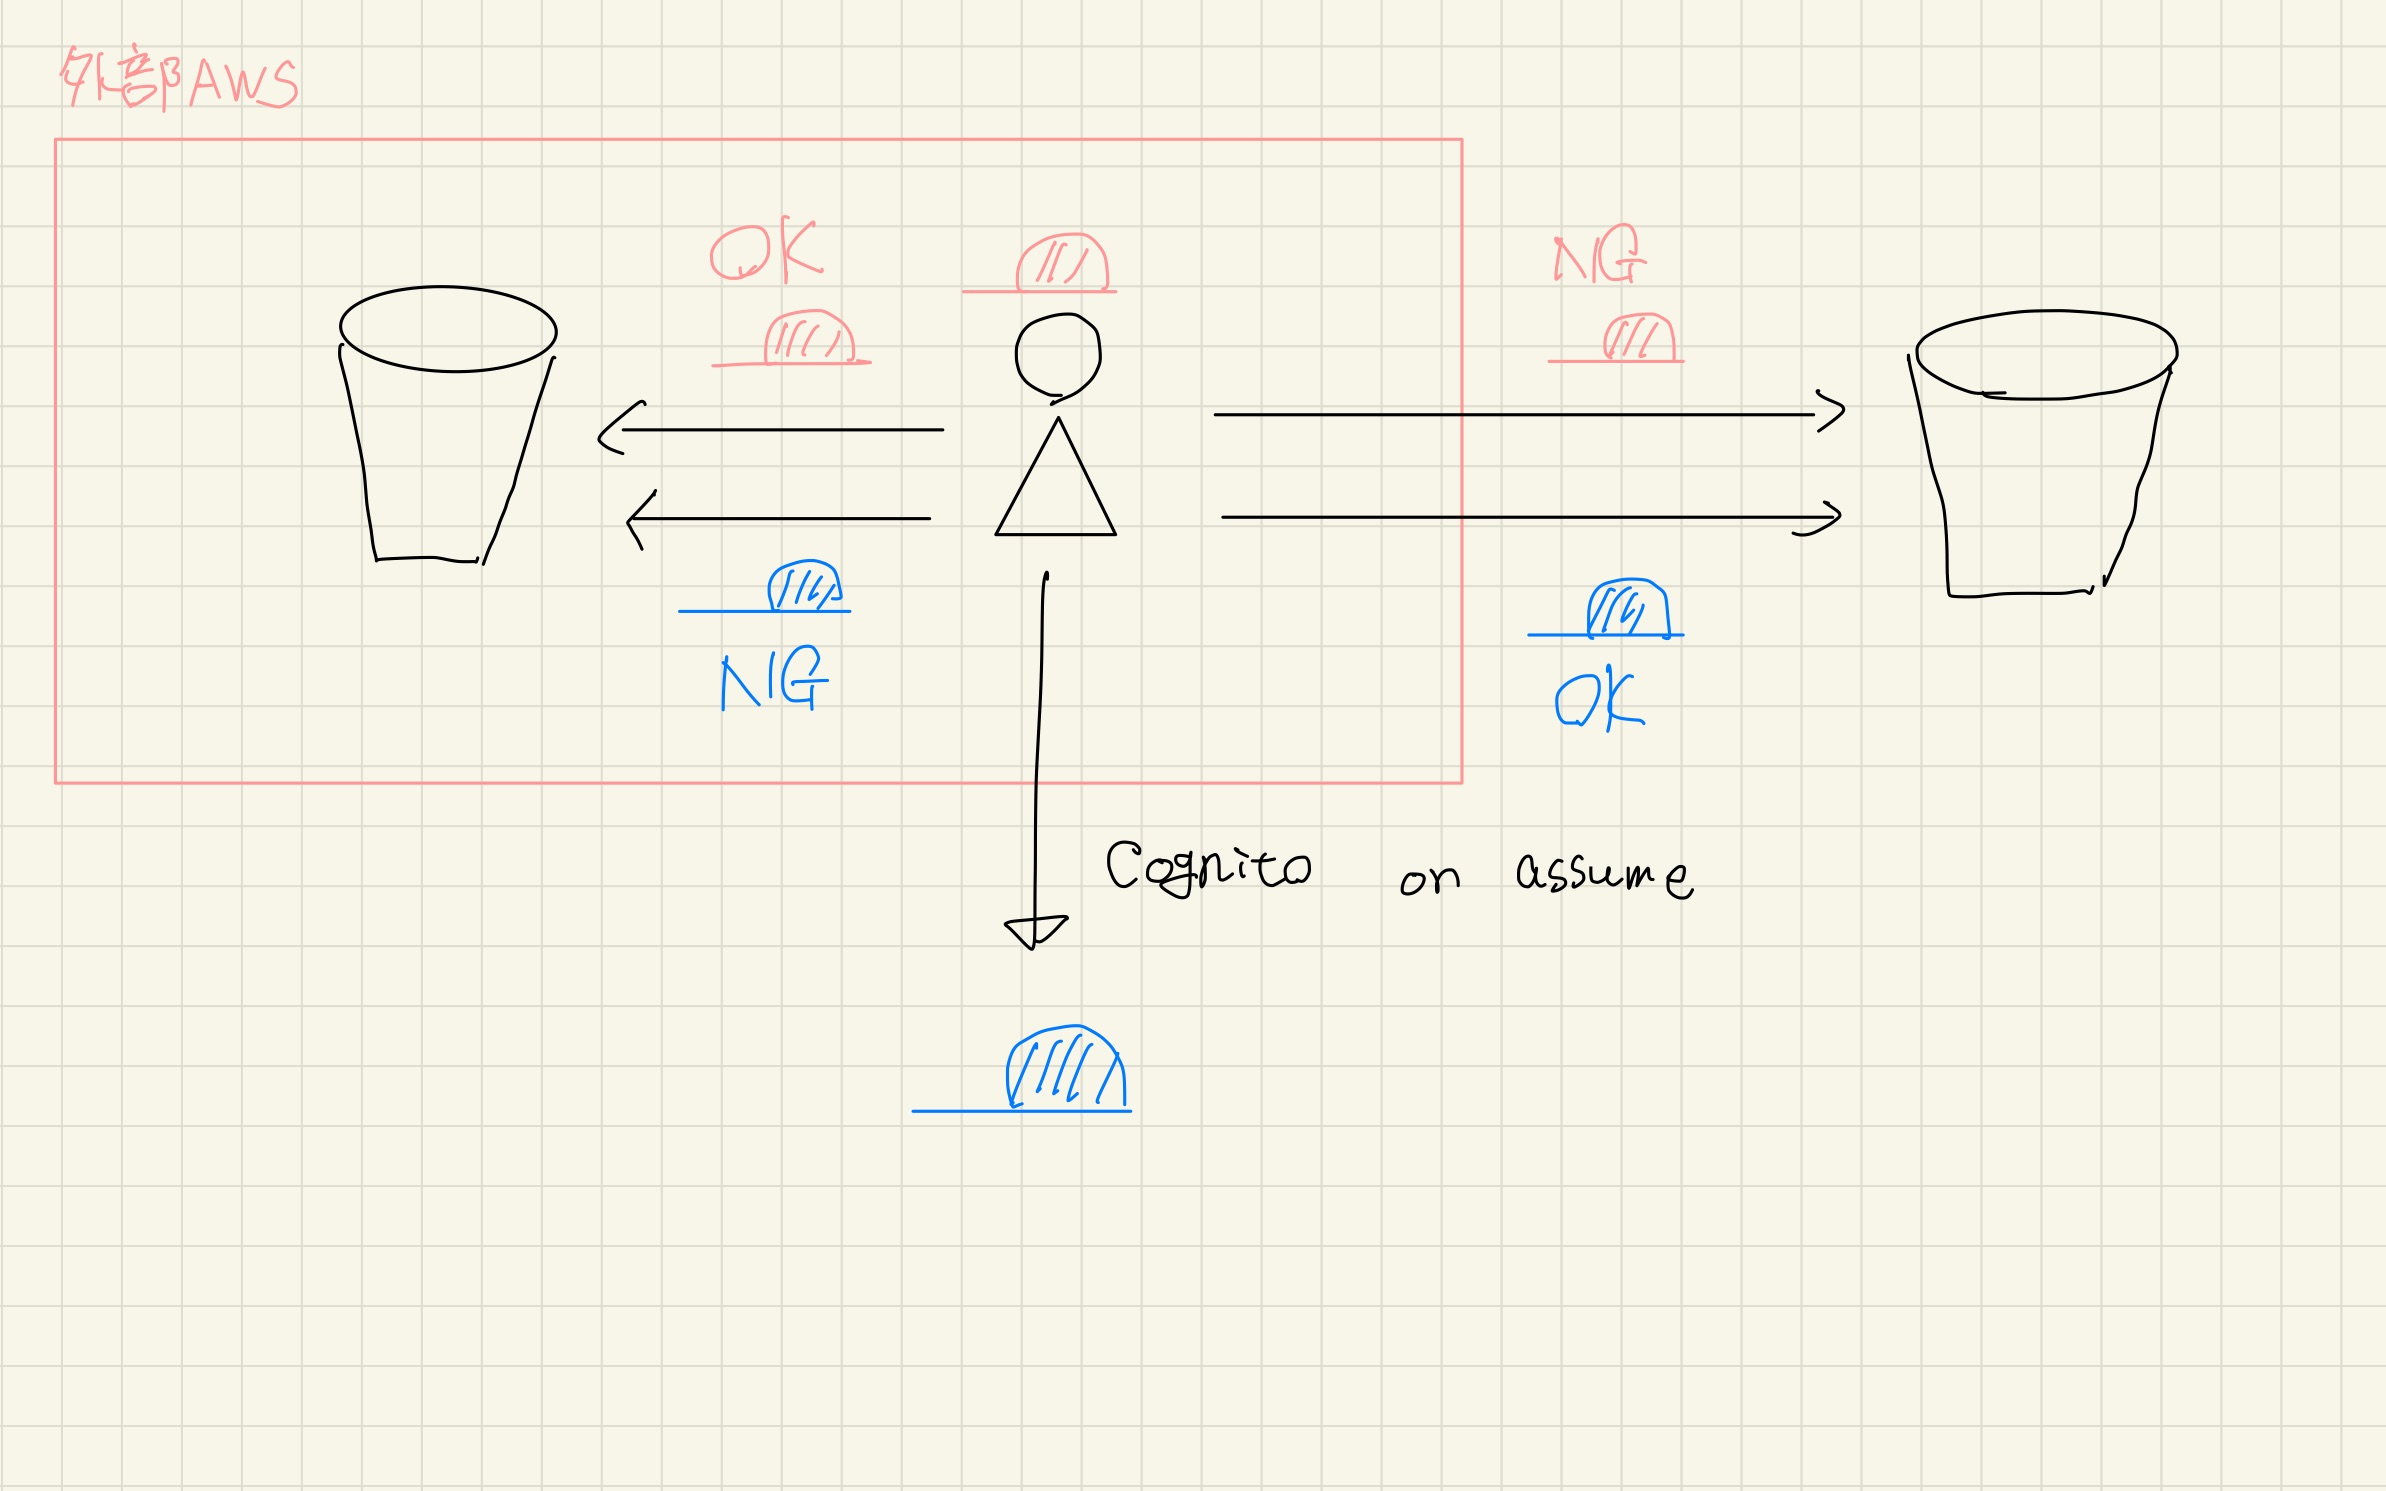 外部AWS
OK
NG
NG
OK
Cognito or assume